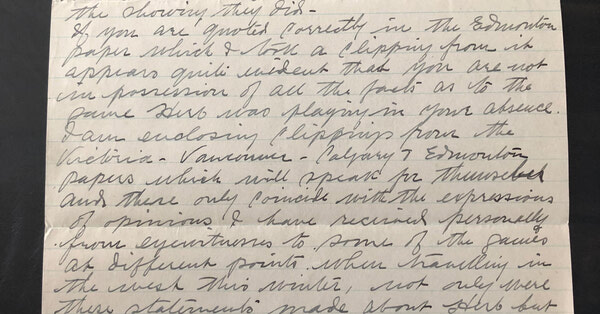 the showing they did-
If you are quoted correctly in the Edmonton
paper which I took a clipping from it
appears quite evident that you are not
in possession of all the facts as to the
game Herb was playing in your absence.
I am enclosing clippings from the
Victoria - Vancouver - Calgary & Edmonton
papers which will speak for themselves
and these only coincide with the expressions
of opinions I have received personally
from eyewitnesses to some of the games
at different points when travelling in
the west this winter, not only were
these statements made about Herb but